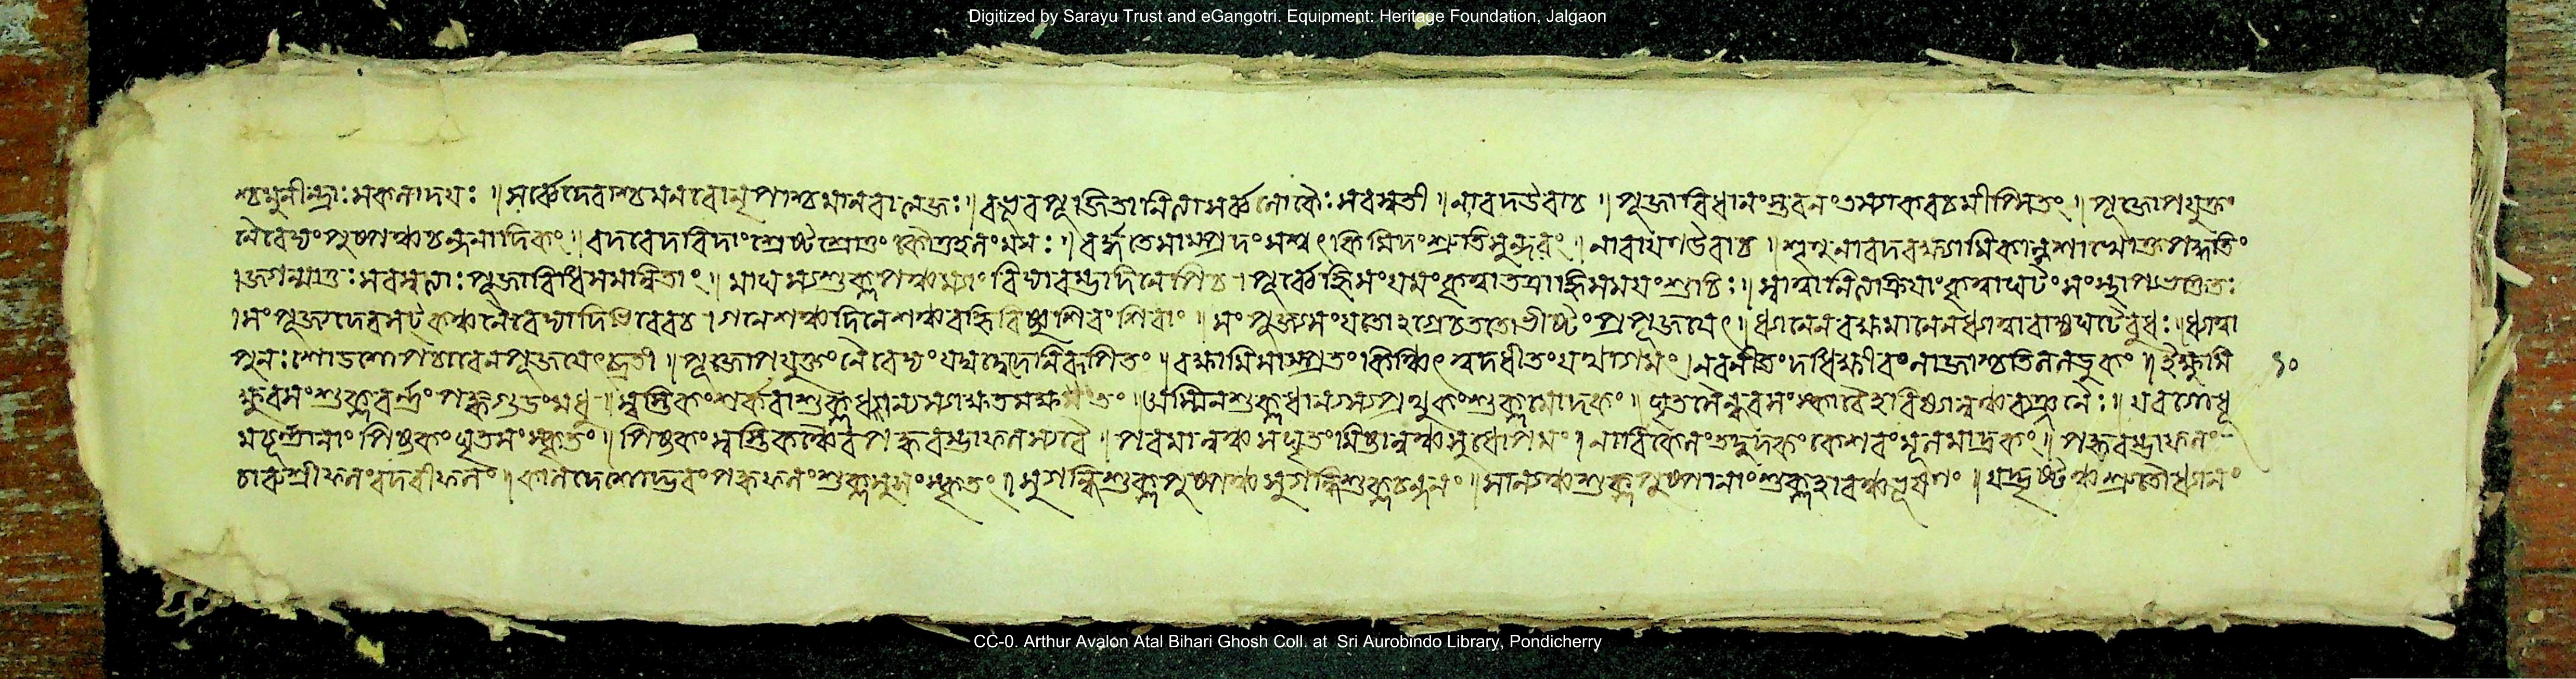 শ্চমুনীন্দ্রাঃসনকাদয়ঃ ৷৷ সর্ব্বেদেবাশ্চমনবোনৃপাশ্চমানবা ৷৷ বভূবপূজিতানিত্যাসর্ব্বলোকৈঃসরস্বতী ৷৷ নারদউবাচ ৷৷ পূজাবিধানংস্তবনং কবচমীপ্সিতং ৷৷ পূজোপযুক্তং
নৈবেদ্যংপুষ্পঞ্চচন্দনাদিকং ৷৷ বদবেদবিদাংশ্রেষ্ঠশ্রোতুংকৌতূহলংমম ৷৷ বর্দ্ধতেসাম্প্রতংশশ্বৎকিমিদংশ্রুতিসুন্দরং ৷৷ নারায়ণউবাচ ৷৷ শৃণুনারদবক্ষ্যামিকান্বশাখোক্তপদ্ধতিং
৷জগন্মাতুঃসরস্বত্যাঃপূজাবিধিসমান্বিতাং ৷৷ মাঘস্যশুক্লপঞ্চম্যাংবিদ্যারম্ভদিনেপিচ ৷ পূর্ব্বেহ্নিসংযমংকৃত্বাতত্রাহ্নি শুচিঃ ৷৷ স্নাত্বানিত্যক্রিয়াংকৃত্বাঘটংসংস্থাপ্য
৷সংপূজ্যদেবষট্কঞ্চনৈবেদ্যাদিভিরেবচ ৷ গনেশঞ্চদিনেশঞ্চবহ্নিংবিষ্ণুংশিবংশিবাং ৷৷ সংপূজ্যসংযতোঽগ্রেচততোভীষ্টংপ্রপূজয়েৎ ৷৷ ধ্যানেনবক্ষ্যমানেনধ্যাত্বাবাহ্যঘটেবুধঃ ৷৷ ধ্যাত্বা
পুনঃষোডশোপচারেনপূজয়েৎব্রতী ৷৷ পূজোপযুক্তংনৈবেদ্যংযদ্যদ্বেদেনিরূপিতং ৷৷ বক্ষ্যামিসাম্প্রতংকিঞ্চিৎ ধীতংযথাগমং ৷ নবনীতংদধিক্ষীরংলাজাশ্চতিললড্ডুকং ৷৷ ইক্ষুমি ৯০
ক্ষুরসংশুক্লবর্ন্নংপক্কগুডংমধু ৷৷ স্বস্তিকংশর্করাশুক্লধান্যস্যাক্ষতমক্ষতং ৷৷ অস্বিন্নশুক্লধান্যস্যপৃথুকংশুক্লমোদকং ৷৷ ঘৃতসৈন্ধবসংস্কারৈহবিষ্যান্নঞ্চব্যঞ্জনৈঃ ৷৷ যবগোধূ
মচূর্ন্নানাংপিষ্টকংঘৃতসংস্কৃতং ৷৷ পিষ্টকংস্বস্তিকঞ্চৈবপক্করম্ভাফলস্যবৈ ৷৷ পরমান্নঞ্চসঘৃতংমিষ্টান্নঞ্চসুধোপমং ৷ নারিকেলংতদুদকংকেশরংমূলমার্দ্রকং ৷৷ পক্করম্ভাফলং
চারুশ্রীফলংবদরীফলং ৷৷ কালদেশোদ্ভবংপক্কফলংশুক্লসুসংস্কৃতং ৷৷ সুগন্ধিশুক্লপুষ্পঞ্চসুগন্ধিশুক্লচন্দনং ৷৷ মাল্যঞ্চশুক্লপুষ্পানাংশুক্লহারঞ্চভূষণং ৷৷ যদ্দৃষ্টঞ্চশ্রুতৌধ্যানং
Digitized by Sarayu Trust and eGangotri. Equipment: Heritage Foundation, Jalgaon
CC-0. Arthur Avalon Atal Bihari Ghosh Coll. at Sri Aurobindo Library, Pondicherry